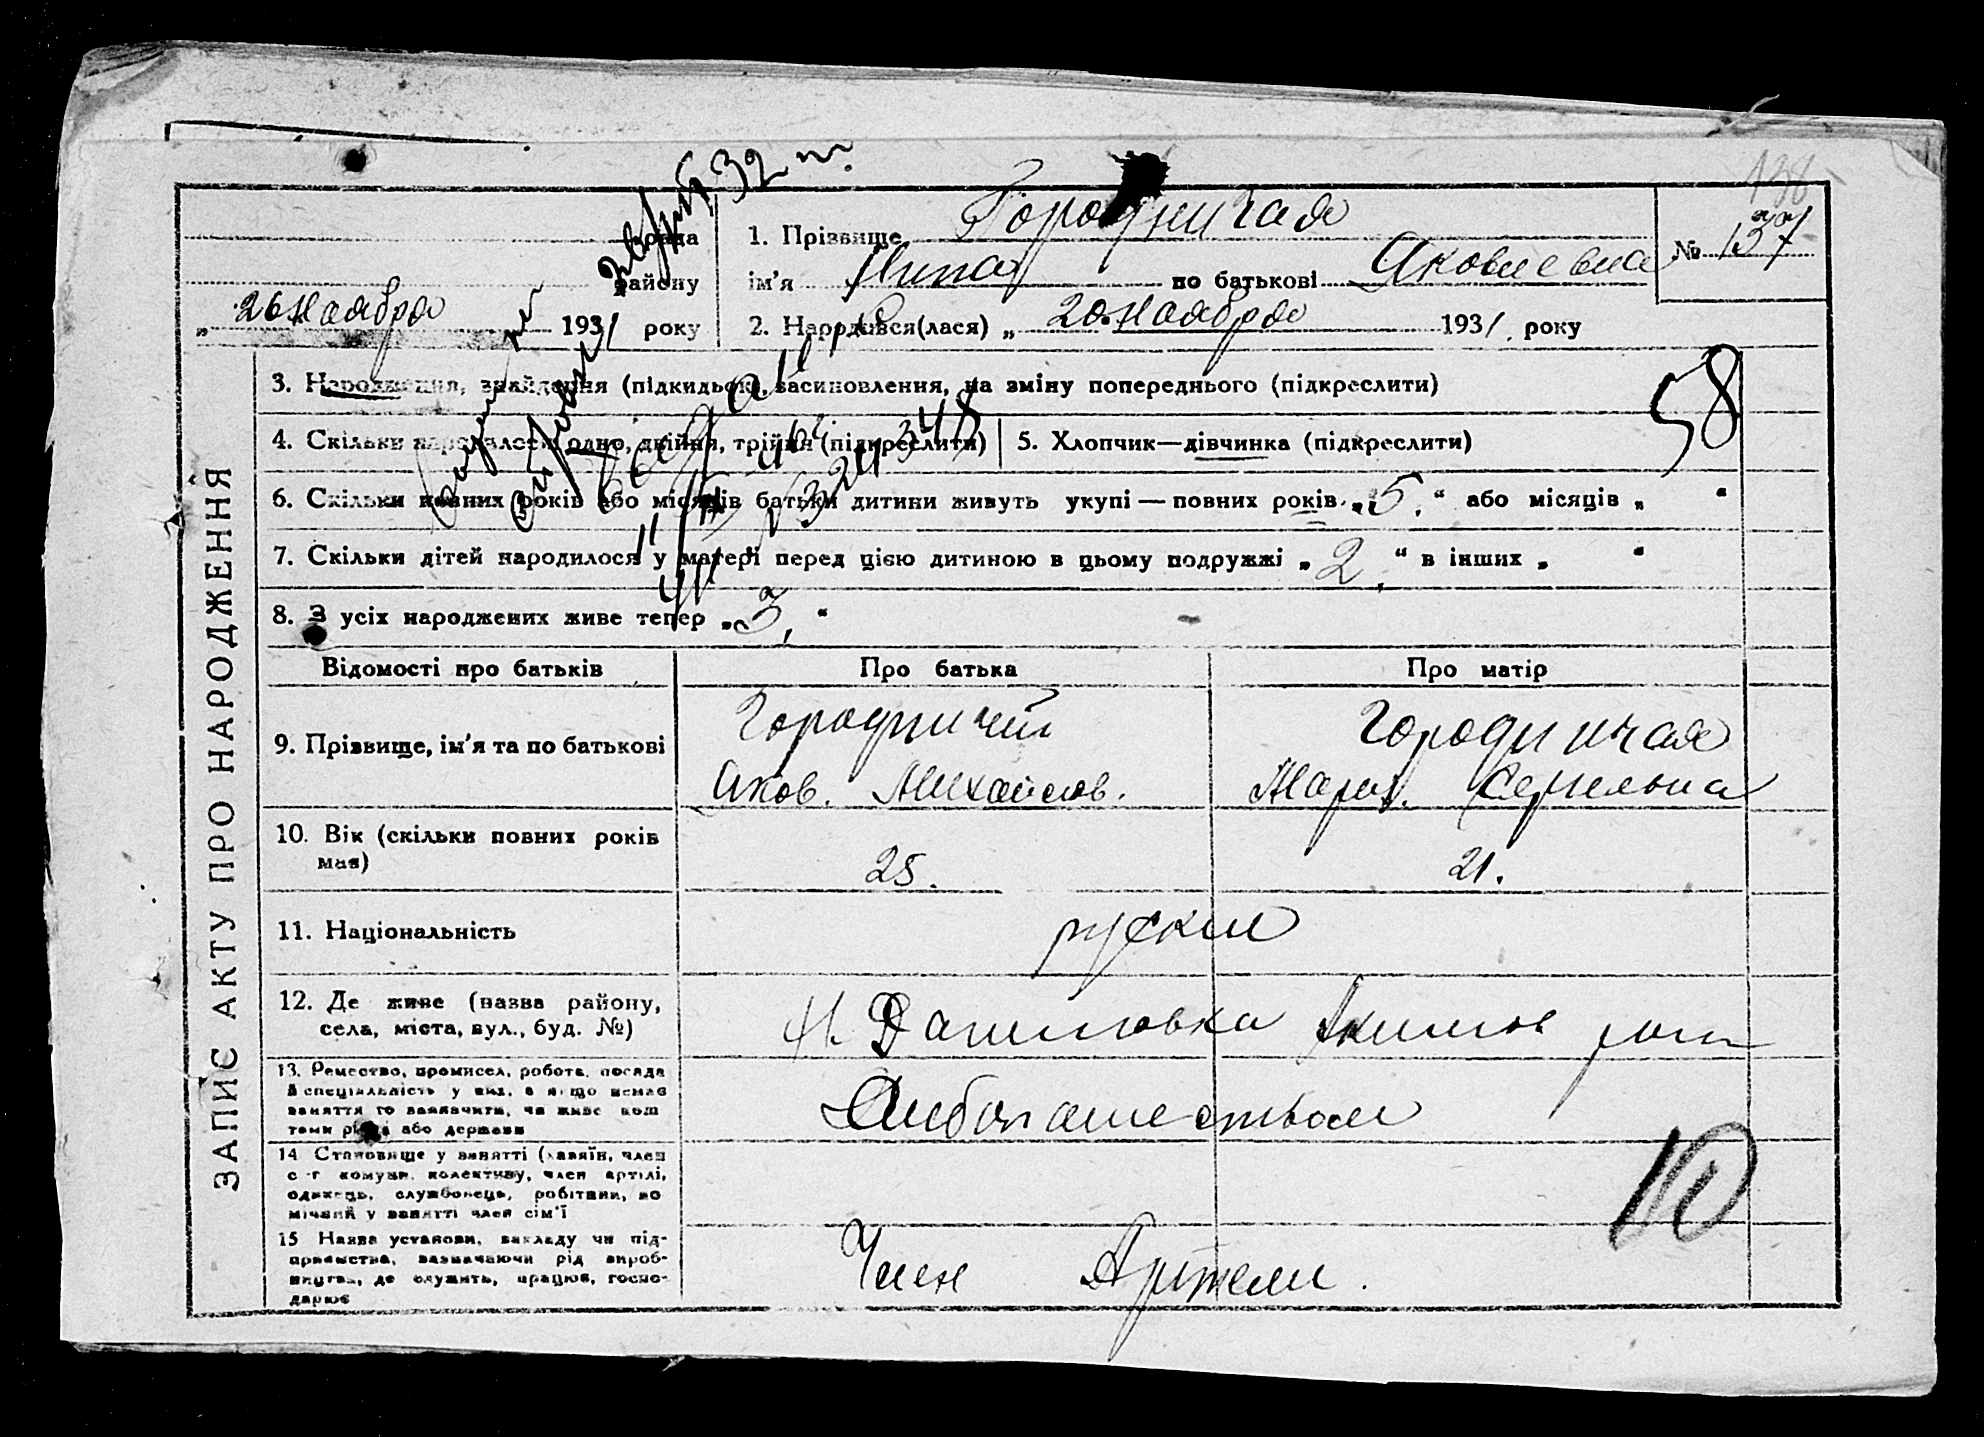 138
Городничая
рада
1. Прізвище
№ 137
району
ім'я Нина по батькові Яковлевна
„ 26 Ноября 1931 року
2. Народився(лася) „ 20 Ноября 1931. року
3. Народження, знайдення (підкидьок), засиновлення, на зміну попереднього (підкреслити)
58
4. Скільки народилося: одно, двійня, трійня (підкреслити)
5. Хлопчик—дівчинка (підкреслити)
6. Скільки повних років або місяців батьки дитини живуть укупі — повних років „ 5. “ або місяців „ “
7. Скільки дітей народилося у матері перед цією дитиною в цьому подружжі „ 2. “ в інших „ “
8. З усіх народжених живе тепер „ 3. “
Відомості про батьків
Про батька
Про матір
9. Прізвище, ім'я та по батькові
Городничий
Яков. Михайлов.
Городничая
Мария. Сергеевна
10. Вік (скільки повних років має)
25.
21.
11. Національність
руские
12. Де живе (назва району,
села, міста, вул., буд. №)
Н. Даниловка Акимов
13. Ремество, промисел, робота, посада
й спеціяльність у них, а якщо немає
заняття то зазначити, чи живе кош
тами рідні або держави
Хлебопашеством
14 Становище у занятті (хазяїн, член
с-г комуни, колективу, член артілі,
одинець, службовець, робітник, по
мічний у занятті член сім'ї
10
15 Назва установи, закладу чи під-
приємства, зазначаючи рід вироб-
ництва, де служить, працює, госпо-
дарює
Член Артели.
ЗАПИС АКТУ ПРО НАРОДЖЕННЯ